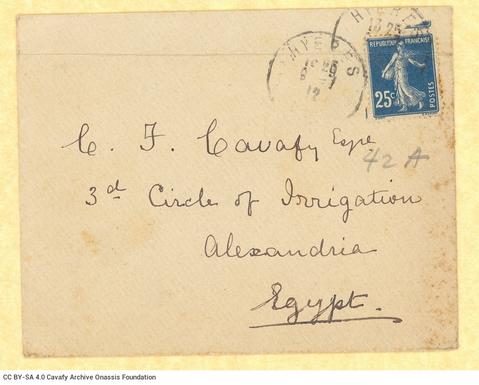 HYERES
REPUBLIQUE FRANÇAISE
25c
POSTES
HYERES
12
C. F. Cavafy Esqre
42 A
3d Circle of Irrigation
Alexandria
Egypt.
CC BY-SA 4.0 Cavafy Archive Onassis Foundation